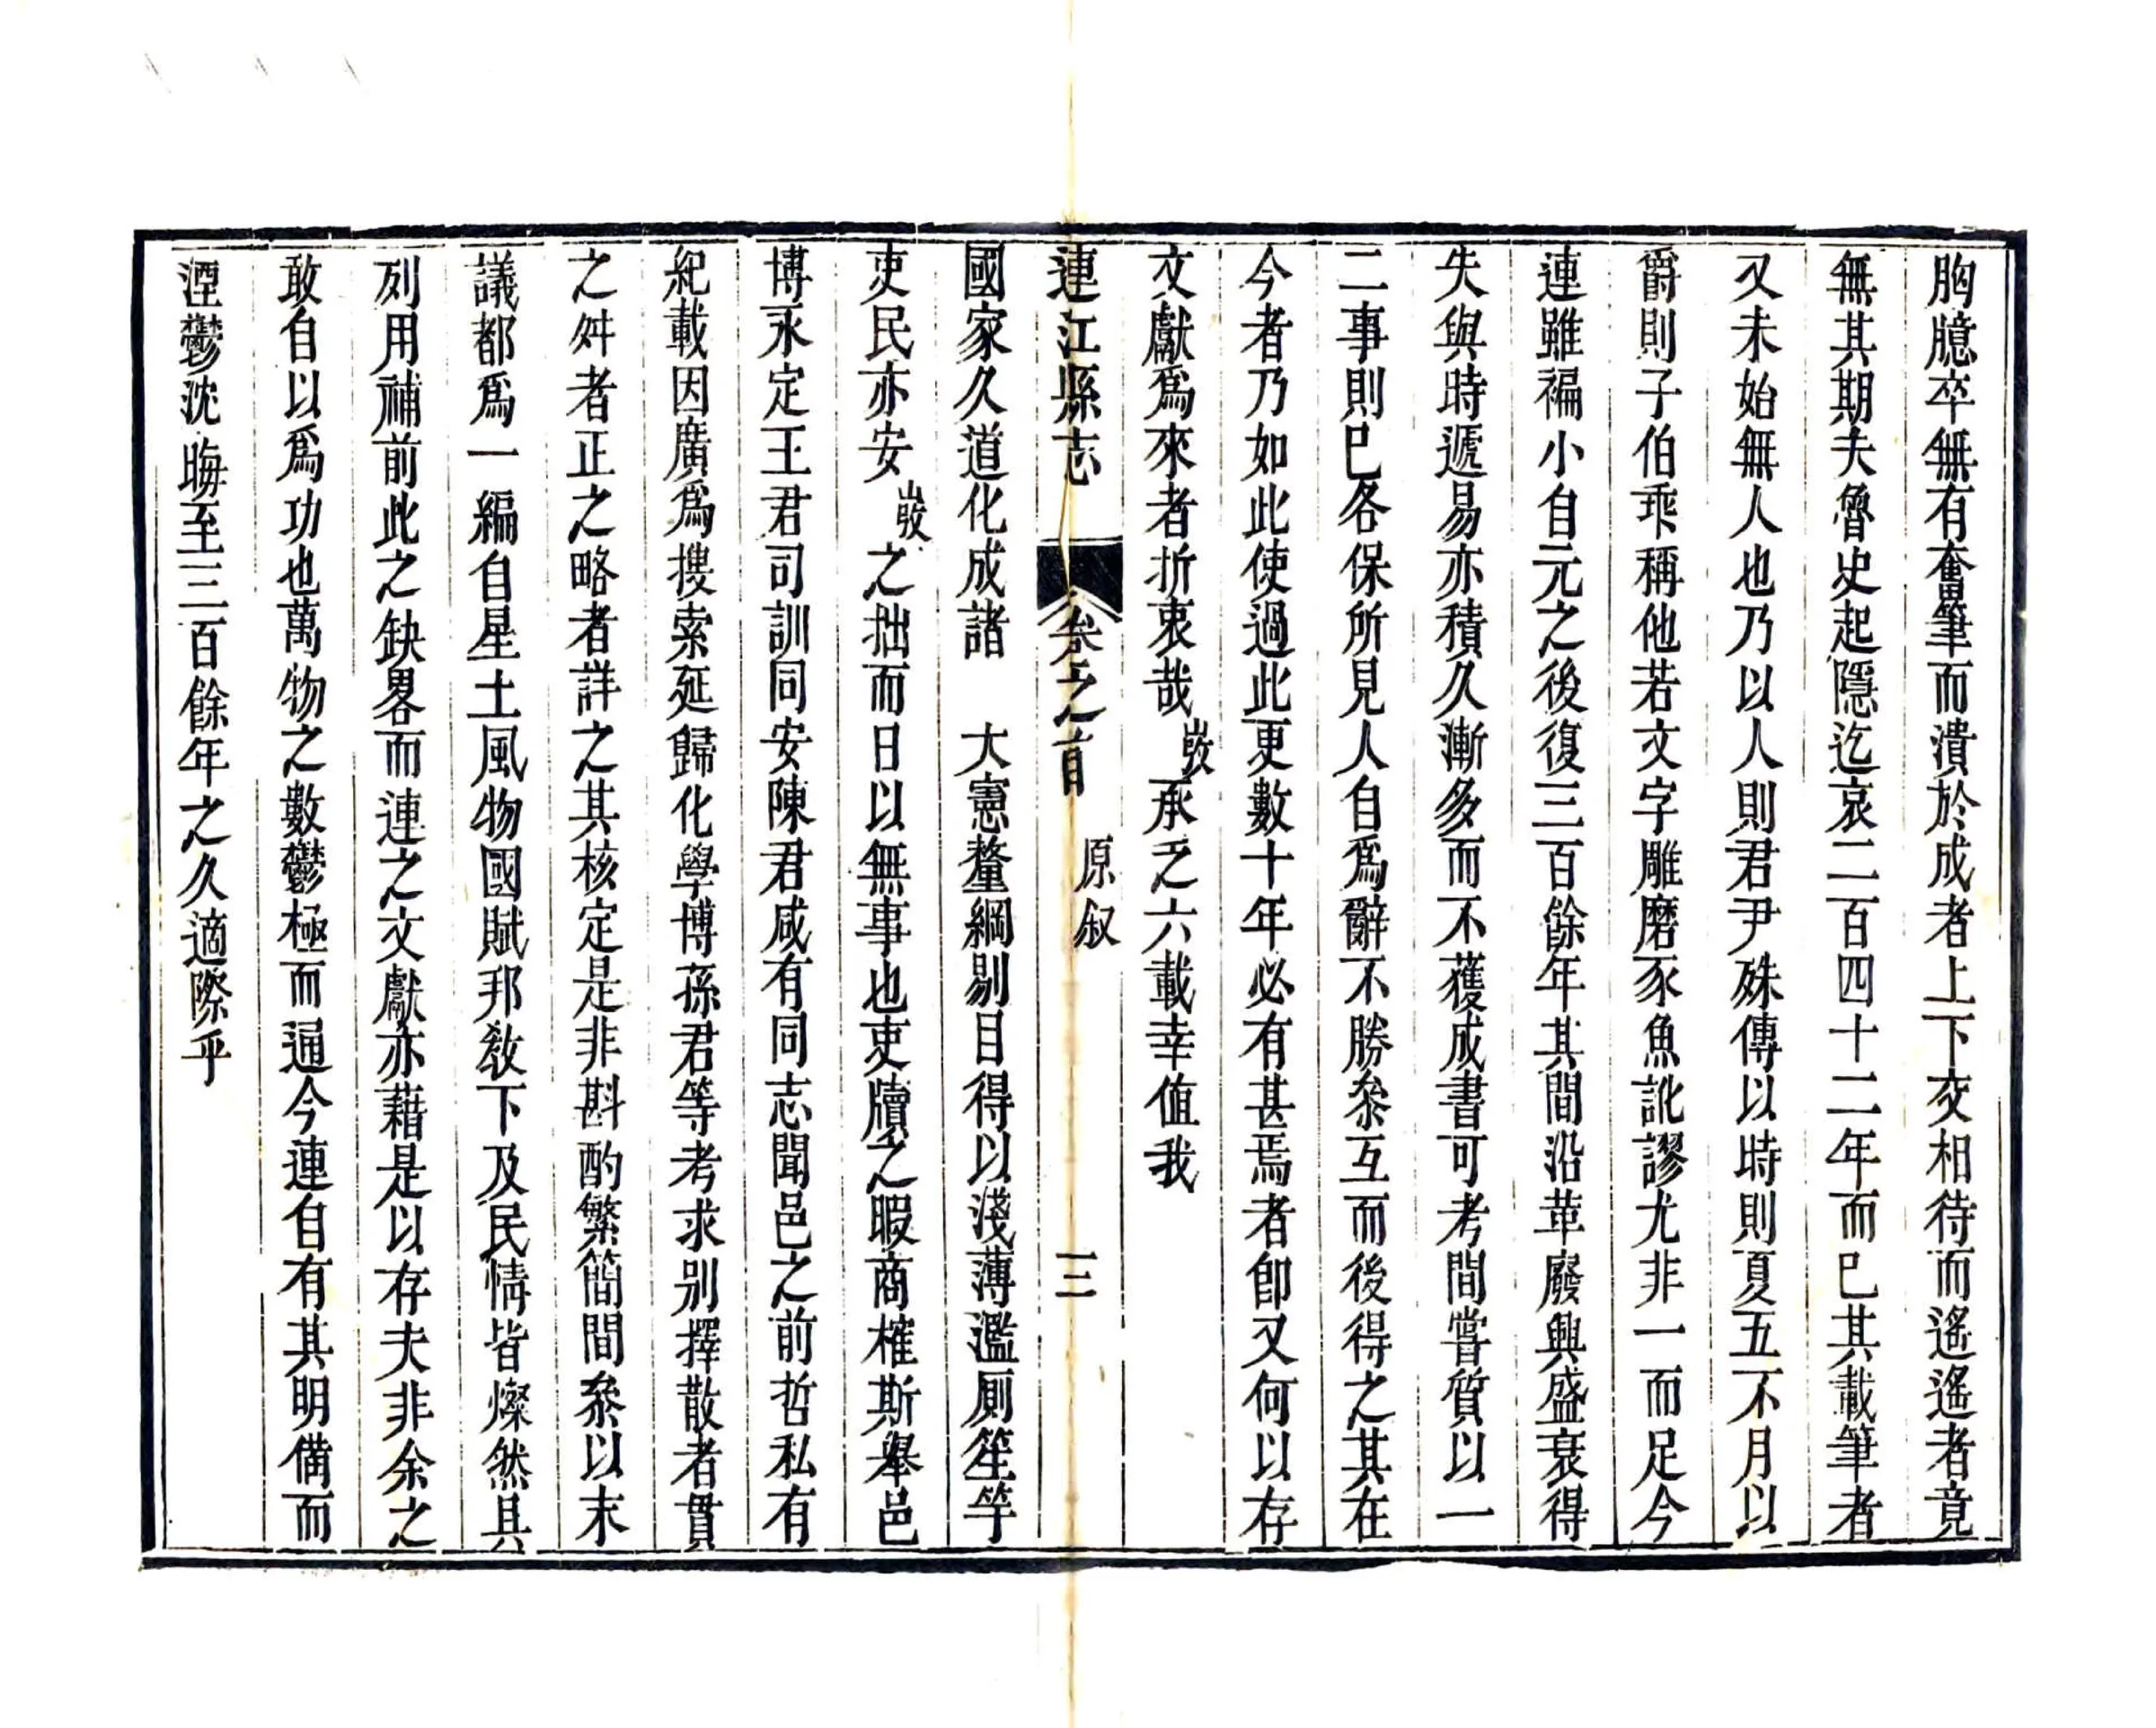 胸臆卒無有奮筆而潰於成者上下交相待而遙遙者竟
無其期夫魯史起隱迄哀二百四十二年而已其載筆者
又未始無人也乃以人則君尹殊傳以時則夏五不月以
爵則子伯乖稱他若文字雕磨豕魚訛謬尤非一而足今
連雖褊小自元之後復三百餘年其間沿革廢興盛衰得
失與時遞易亦積久漸多而不獲成書可考間嘗質以一
二事則已各保所見人自爲辭不勝叅互而後得之其在
今者乃如此使過此更數十年必有甚焉者卽又何以存
文獻爲來者折衷哉㟼承乏六載幸值我
連江縣志 卷之首 原叙 三
國家久道化成諸 大憲釐綱剔目得以淺薄濫厠笙竽
吏民亦安㟼之拙而日以無事也吏牘之暇商榷斯舉邑
博永定王君司訓同安陳君咸有同志聞邑之前哲私有
紀載因廣爲搜索延歸化學博孫君等考求别擇散者貫
之舛者正之略者詳之其核定是非斟酌繁簡間叅以末
議都爲一編自星土風物國賦邦敎下及民情皆燦然具
列用補前此之缺畧而連之文獻亦藉是以存夫非余之
敢自以爲功也萬物之數鬱極而通今連自有其明備而
湮鬱沈晦至三百餘年之久適際乎